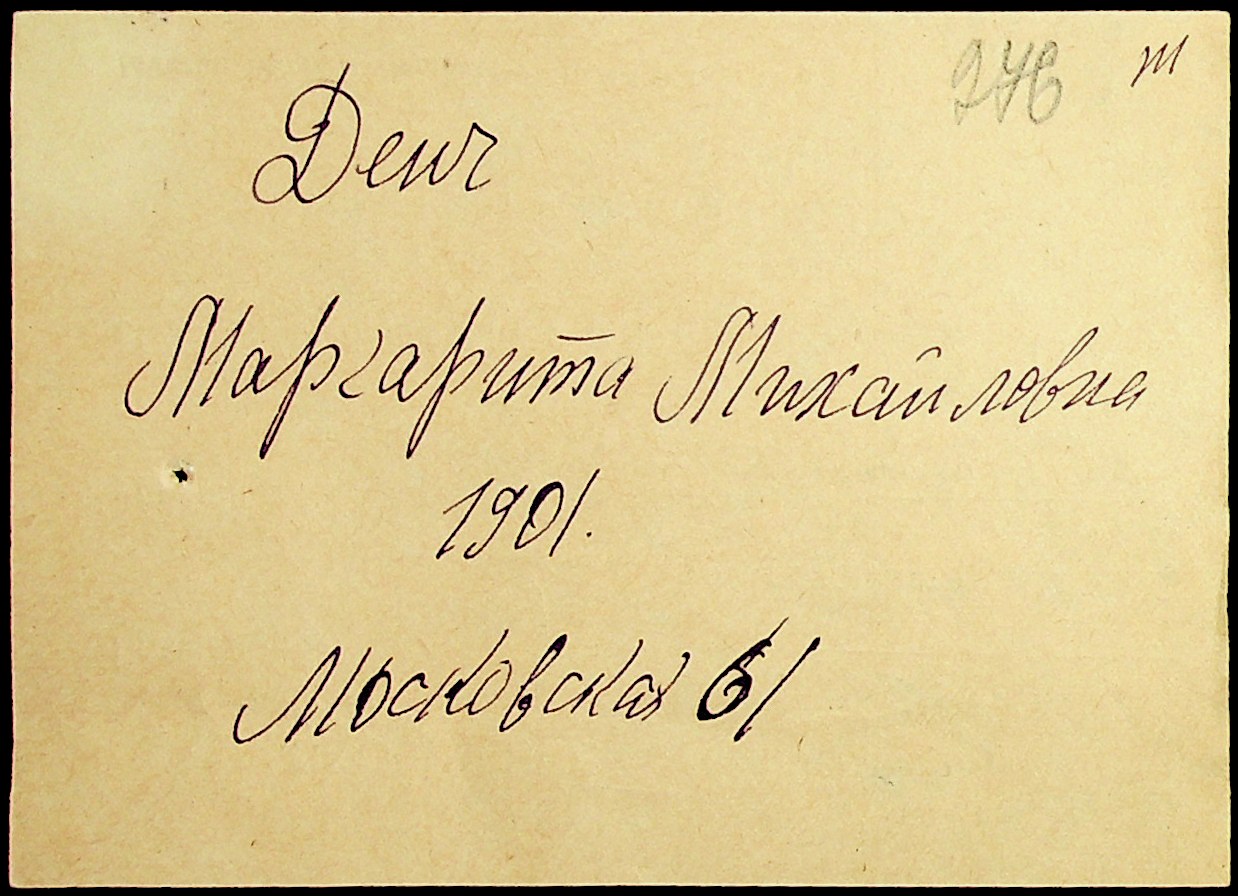 т
Денч
Маргарита Михайловна
1901.
Московская 61